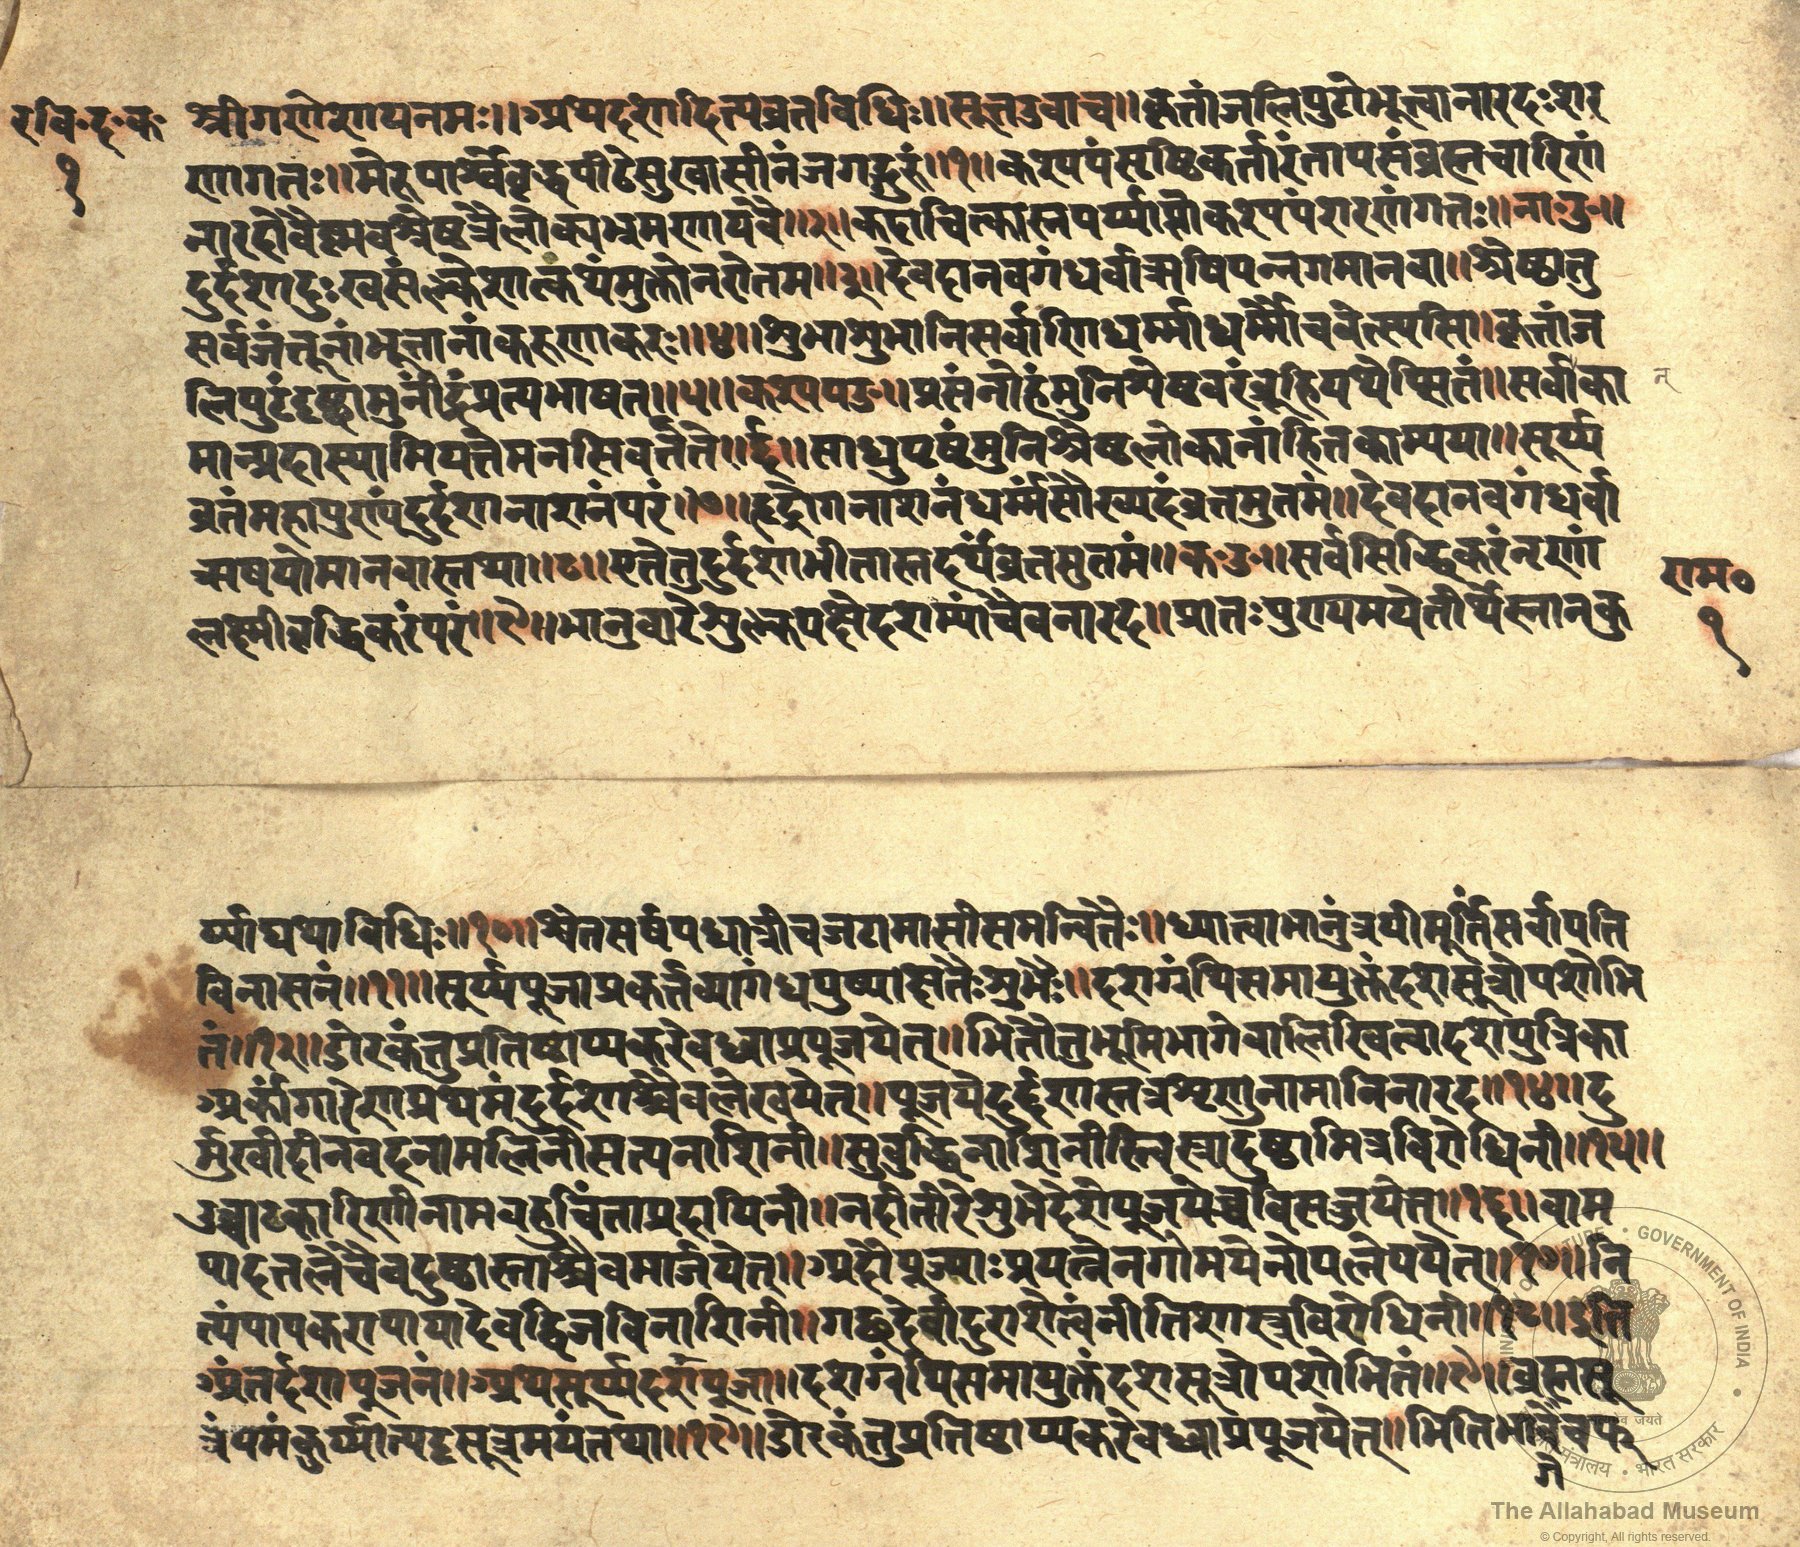 रवि॰द॰क
१
श्रीगणेशायनमः॥अथदशादित्यव्रतविधिः॥सूतउवाच॥कृतांजलिपुटोभूत्वानारदःशर
णागतः॥मेरूपार्श्वेवृद्धपीठेसुखासीनंजगद्गुरूं॥१॥कश्यपंसृष्टिकर्त्तारंतापसंब्रह्मचारिणं
नारदोवैवैष्णवश्रेष्ठत्रैलोक्यभ्रमणायवै॥२॥कदाचित्कालपर्य्याप्तौकश्यपंशरणंगतः॥ना॰उ॥
दुर्दशादुःखसंल्केशात्कथंमुक्तोनरोतम॥३॥देवदानवगंधर्वाऋषिपन्नगमानवा॥श्रेष्ठातु
सर्वजंतूनांभूतानांकरुणाकरः॥४॥शुभाशुभानिसर्वाणिधर्माधर्मौचवेत्स्यसि॥कृतांज
लिपुटंदृष्ट्वामुनींद्रंप्रत्यभाषत॥५॥कश्यपउ॥प्रसंनोहंमुनिश्रेष्ठवरंब्रूहियथेप्सितं॥सर्वाका
न्
मान्प्रदास्यामियत्तेमनसिवर्त्तते॥६॥साधुपृष्टंमुनिश्रेष्ठलोकानांहितकाम्यया॥सूर्य्य
व्रतंमहापुण्यंदुर्दशानाशनंपरं॥७॥हृद्रोगनाशनंधर्म्मसौख्यदंव्रतमुतमं॥देवदानवगंधर्वा
ऋषयोमानवास्तथा॥८॥एतेतुदुर्दशाभीतास्तदर्थंव्रतमुतमं॥क॰उ॥सर्वसिद्धिकरंनृणां
लक्ष्मीवृद्धिकरंपरं॥९॥भानुवारेशुल्कपक्षेदशम्यांचैवनारद॥प्रातःपुण्यमयेतीर्थेस्नानकु
राम०
१
र्य्याद्यथाविधिः॥१०॥श्वेतसर्षपधात्रीचजटामासीसमन्वितैः॥ध्यात्वाभानुंत्रयीमूर्तिंसर्वापत्ति
विनासनं॥११॥सूर्य्यपूजाप्रकर्त्तव्यागंधपुष्पाक्षतैःशुभैः॥दशग्रंथिसमायुक्तंदशसूत्रोपशोभि
तं॥१२॥डोरकंतुप्रतिष्ठाप्यकरेबध्वाप्रपूजयेत्॥भित्तौतुभूमिभागेवालिखित्वादशपुत्रिका
अर्कांगारेणप्रथमंदुर्दशाश्चैवलेखयेत्॥पूजयेदुर्द्दशास्तत्रशृणुनामानिनारद॥१४॥दु
र्मुखीदीनवदनामलिनीसत्यनाशिनी॥सुबुद्धिनाशिनीहिंस्रादुष्ठामित्रविरोधिनी॥१५॥
उच्चाटकारिणीनामबहुचिंताप्रदायिनी॥नदीतीरेशुभेदेशेपूजयेच्चविसर्ज्जयेत्॥१६॥वाम
पादतलेचैवदुष्ठास्ताश्चैवमार्जयेत्॥अहौपूज्याःप्रयत्नेनगोमयेनोपलेपयेत्॥१७॥नि
त्यंपापकरापायादेवद्विजविनाशिनी॥गछदेवीदुराशेत्वंनीतिशास्त्रविरोधिनी॥१८॥इति
अंतर्दशापूजनं॥अथसूर्य्यदशापूजा॥दशग्रंथिसमायुक्तंदशसूत्रोपशोभितं॥१९॥ब्रह्मसू
त्रंयमंकुर्य्यात्पट्टसूत्रमयंतथा॥१९॥डोरकंतुप्रतिष्ठाप्यकरेबध्वाप्रपूजयेत्॥भितिभागेचफ
गे
GOVERNMENT OF INDIA
भारत सरकार
The Allahabad Museum
© Copyright, All rights reserved.